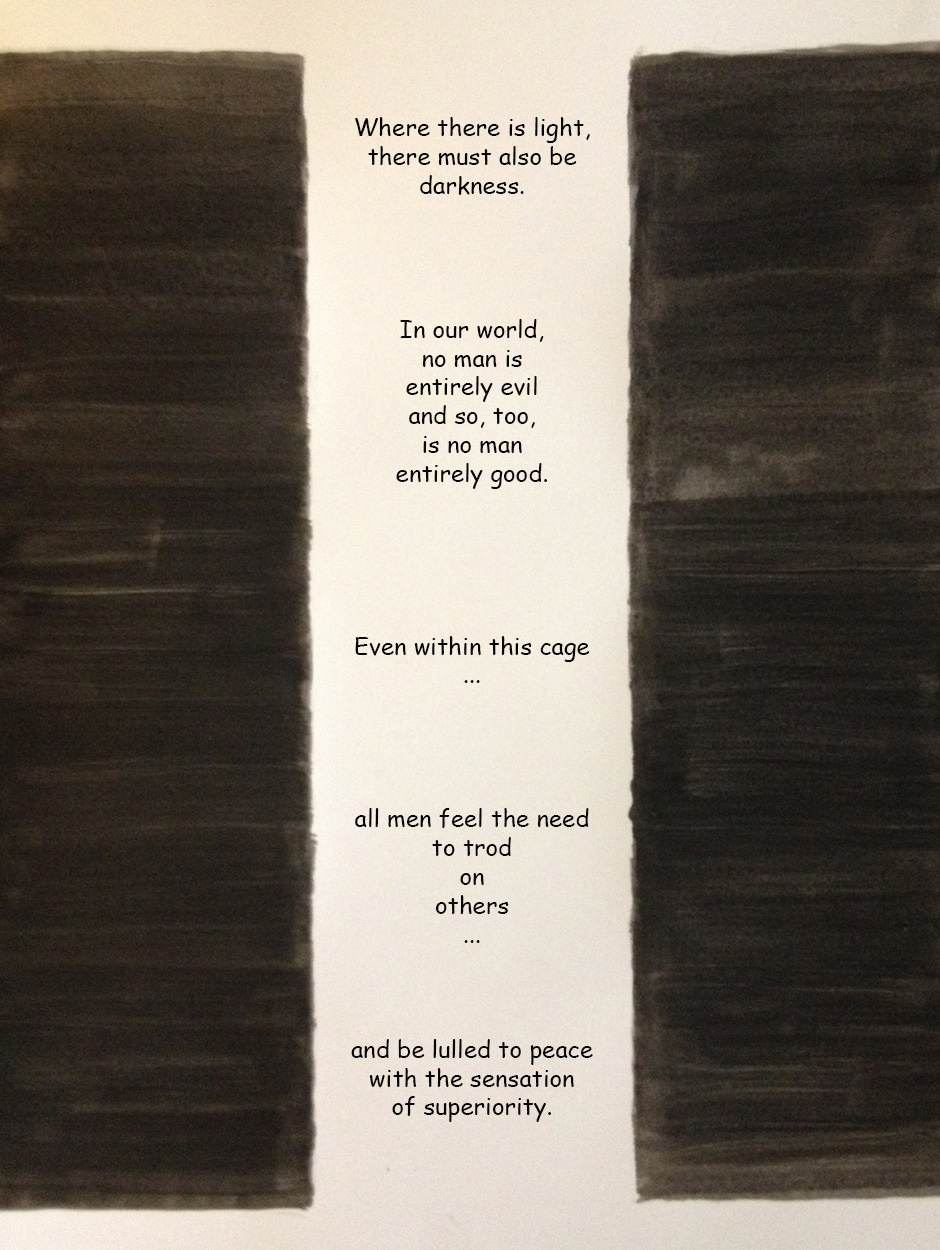 Where there is light,
there must also be
darkness.
In our world,
no man is
entirely evil
and so, too,
is no man
entirely good.
Even within this cage
...
all men feel the need
to trod
on
others
...
and be lulled to peace
with the sensation
of superiority.